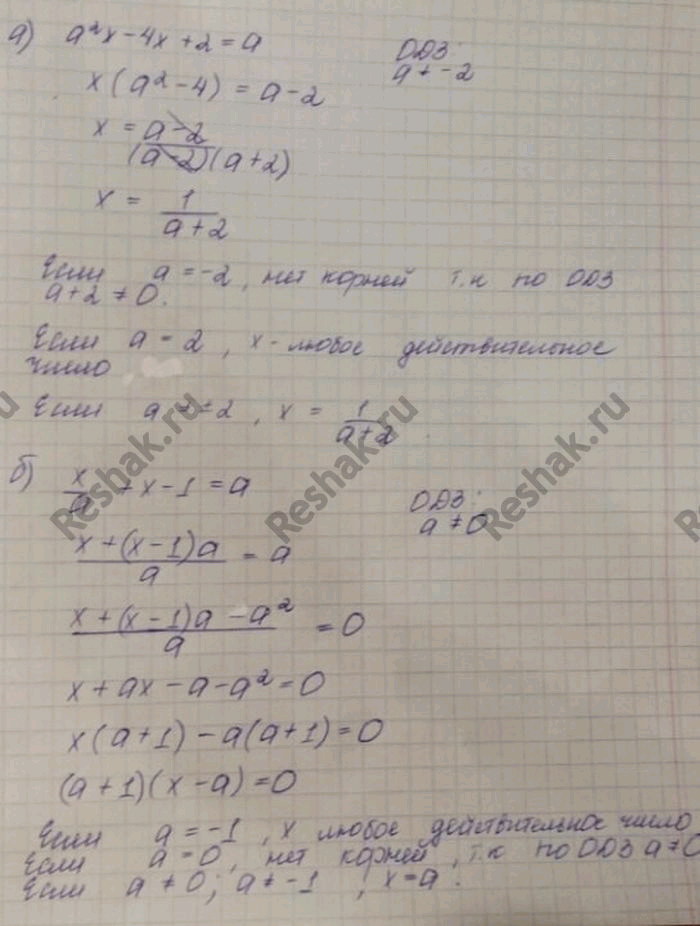 а) a²x-4x+2=a
ОДЗ:
a ≠ -2
x(a²-4) = a-2
x = a-2
(a-2)(a+2)
x = 1
a+2
Если a=-2, нет корней т.к по ОДЗ
a+2≠0.
Если a=2, x-любое действительное
число
Если a≠±2, x = 1
a+2
б) x/a + x-1 = a
ОДЗ:
a≠0
x+(x-1)a = a
a
x+(x-1)a-a² = 0
a
x+ax-a-a²=0
x(a+1)-a(a+1)=0
(a+1)(x-a)=0
Если a=-1, x любое действительное число
Если a=0, нет корней, т.к по ОДЗ a≠0
Если a≠0; a≠-1, x=a.
Reshak.ru
Reshak.ru
Reshak.ru